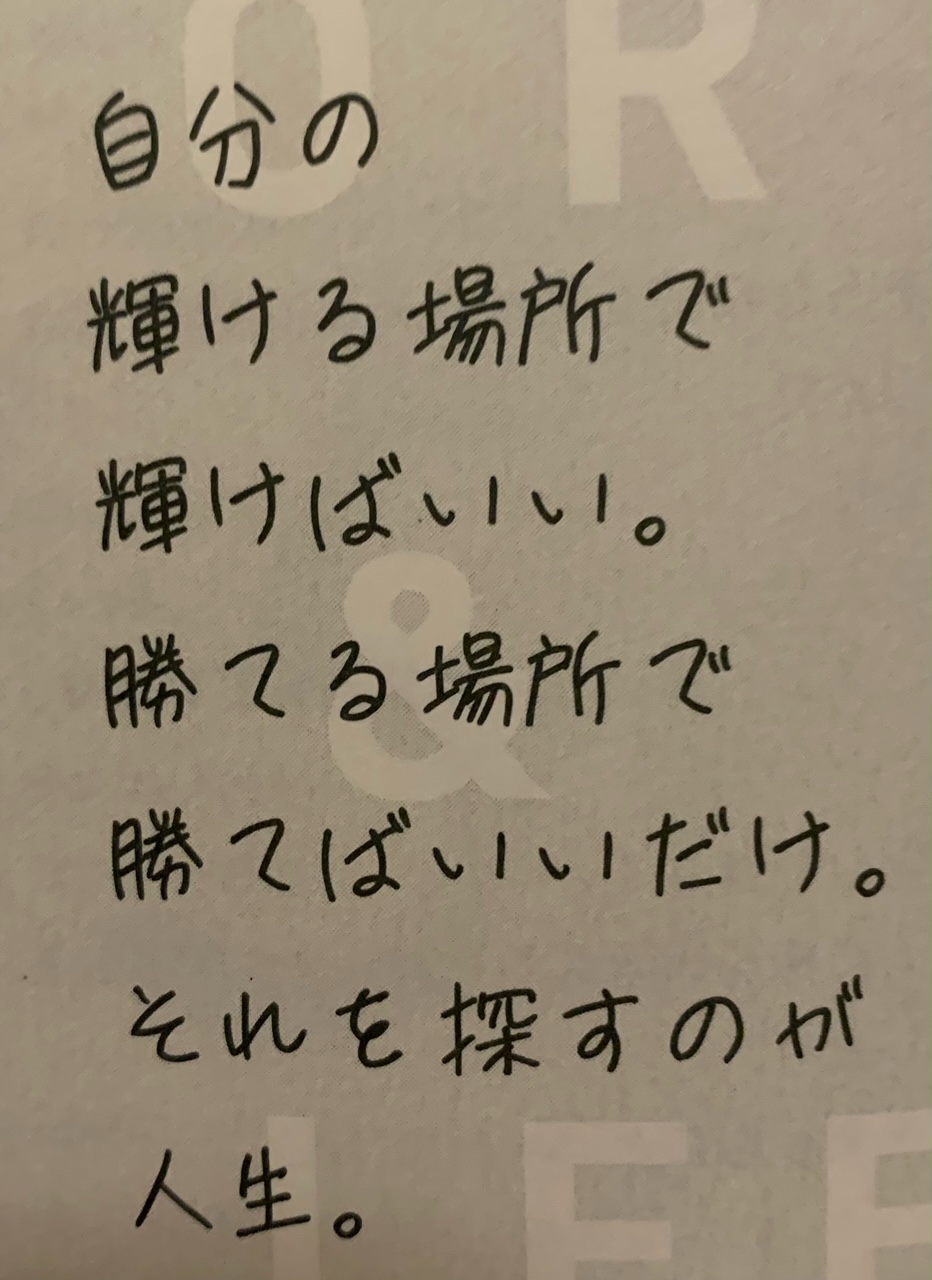 OR
自分の
輝ける場所で
輝けばいい。
&
勝てる場所で
勝てばいいだけ。
それを探すのが
人生。